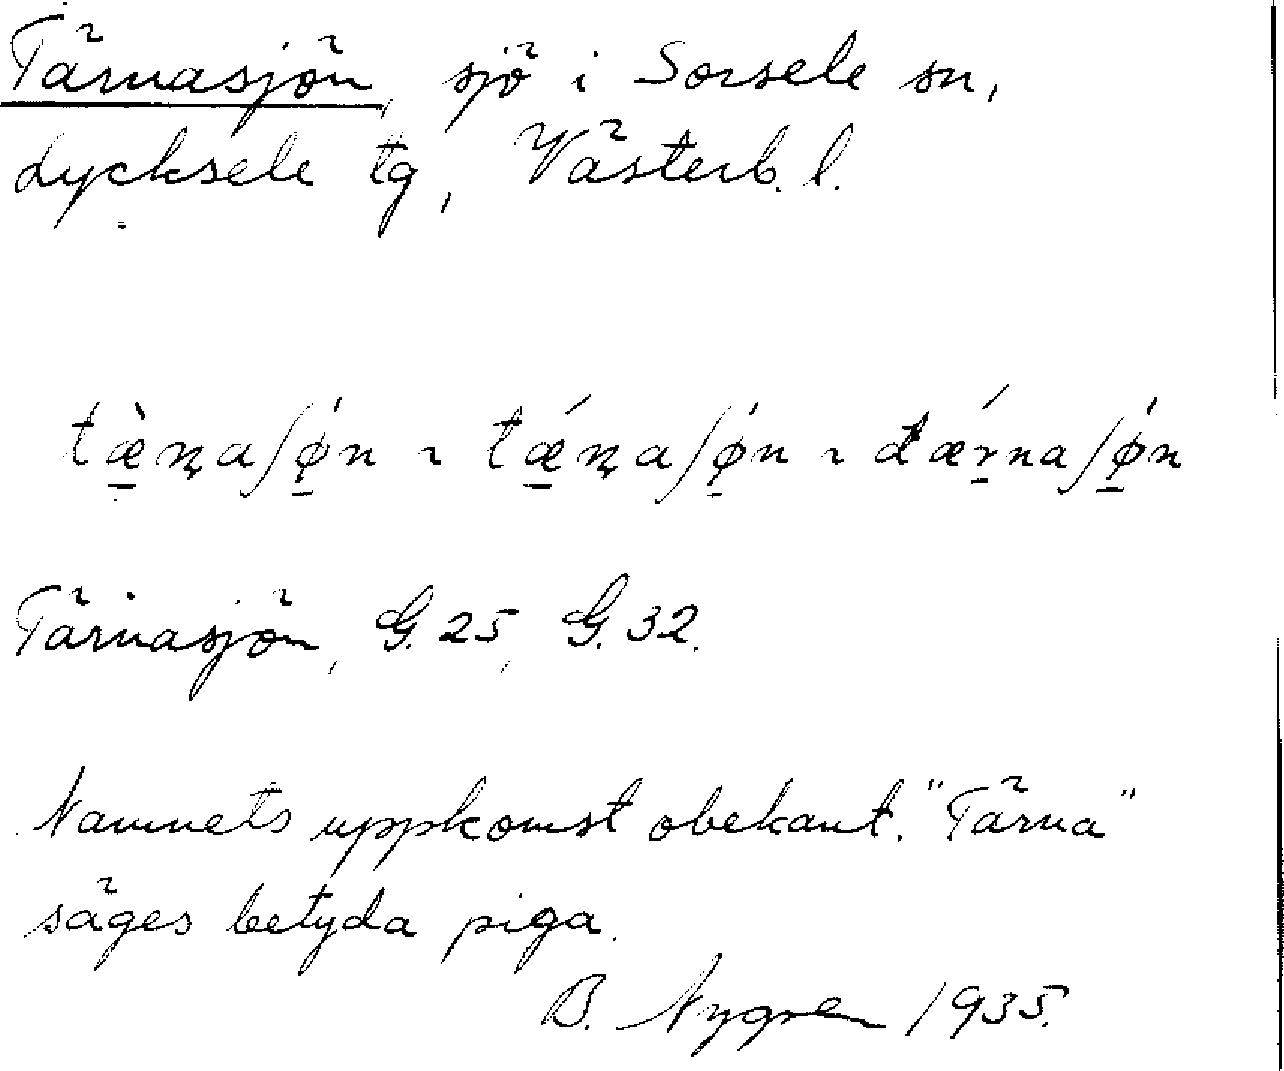 Tärnasjön, sjö i Sorsele sn,
Lycksele tg, Västerb. l.
tæ̀ɳaʃǿn ~ tǽɳaʃǿn ~ tǽrnaʃǿn
Tärnasjön, G. 25, G. 32.
Namnets uppkomst obekant. "Tärna"
säges betyda piga.
B. Nygren 1935.